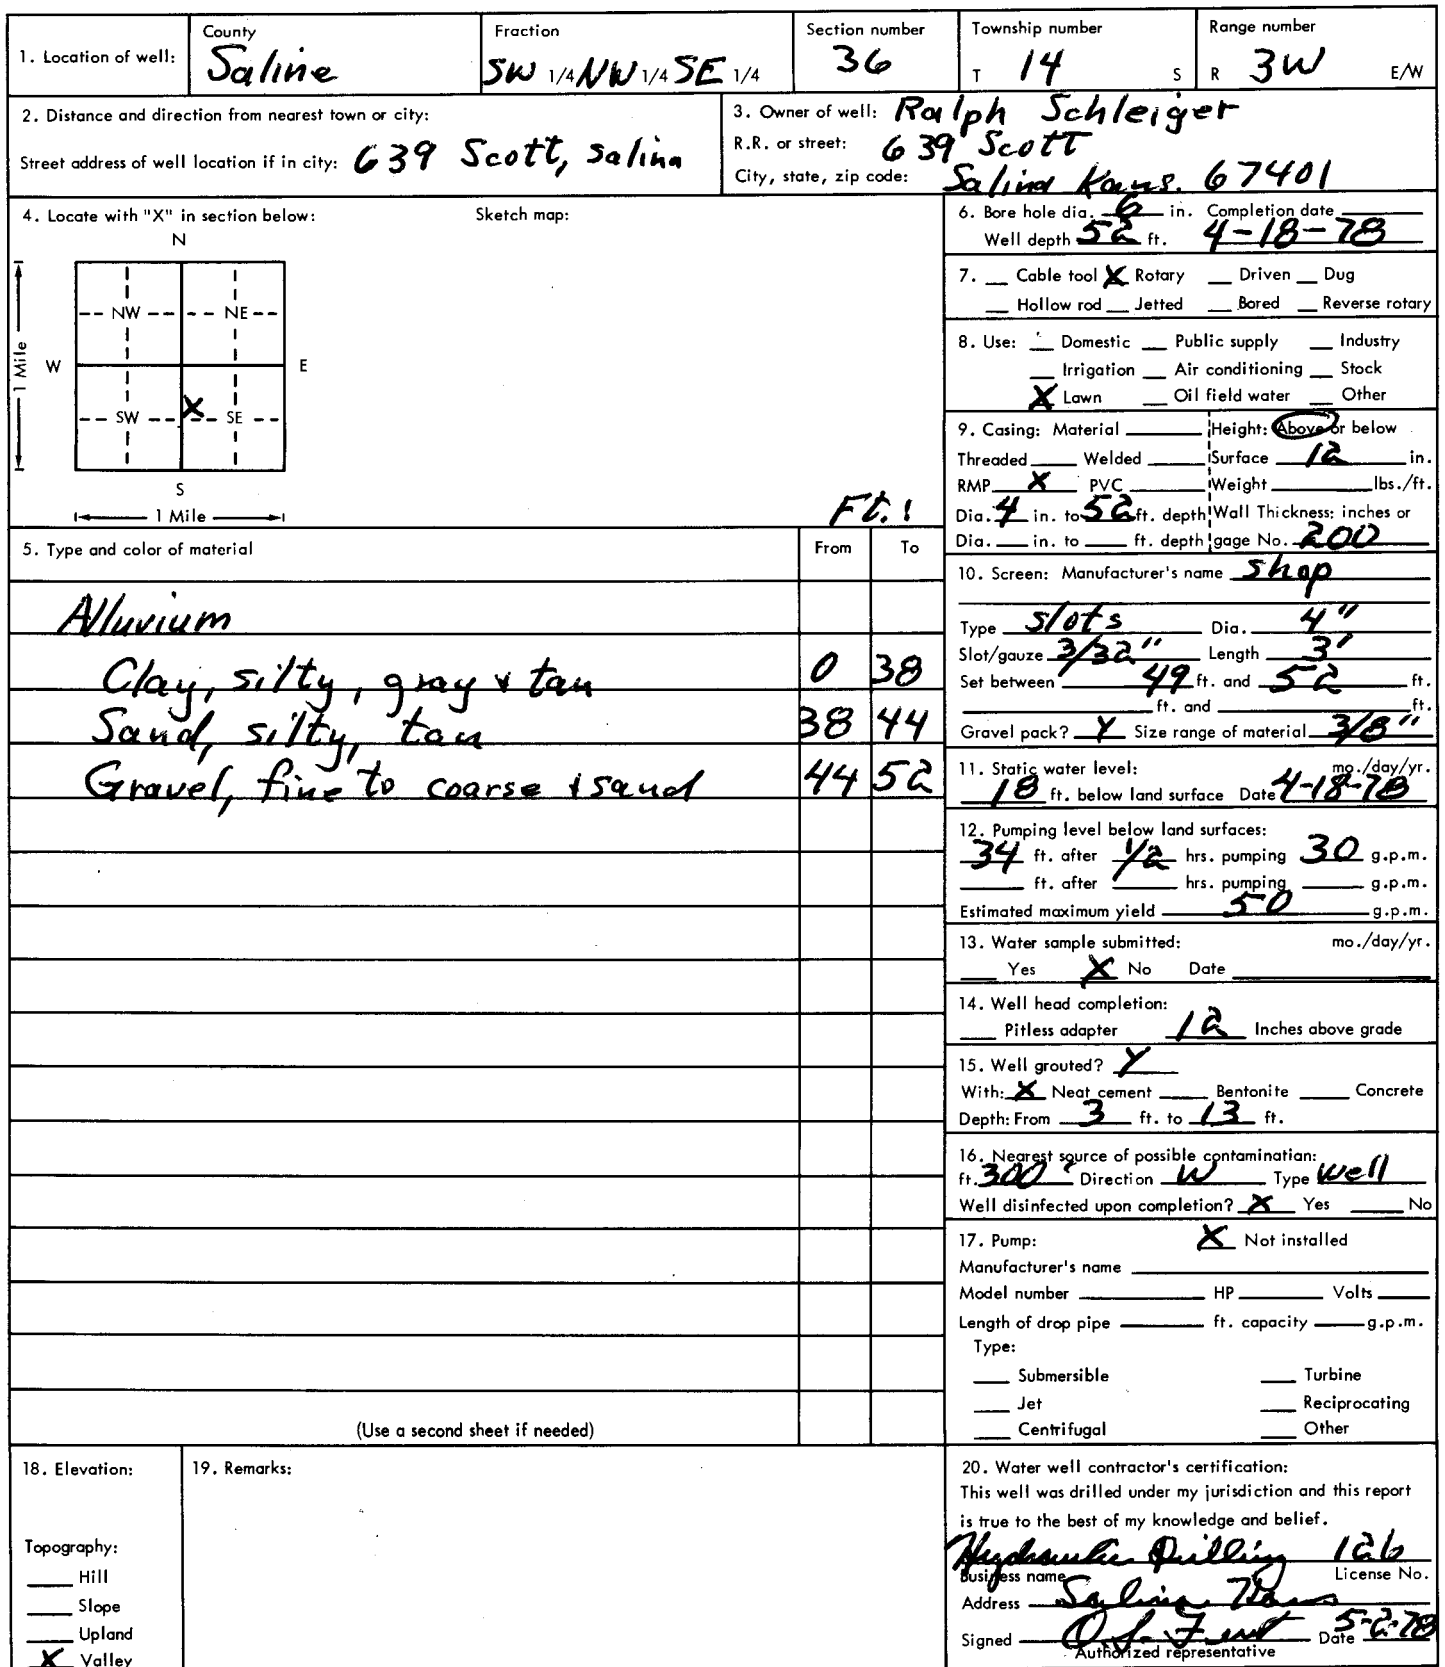 1. Location of well: County Saline Fraction SW 1/4 NW 1/4 SE 1/4 Section number 36 Township number T 14 S Range number R 3W E/W
2. Distance and direction from nearest town or city:
Street address of well location if in city: 639 Scott, Salina
3. Owner of well: Ralph Schleiger
R.R. or street: 639 Scott
City, state, zip code: Salina Kans. 67401
4. Locate with "X" in section below: Sketch map:
N
NW NE
W E
1 Mile
SW X SE
S
1 Mile
Ft.!
5. Type and color of material From To
Alluvium
Clay, silty, gray & tan 0 38
Sand, silty, tan 38 44
Gravel, fine to coarse & sand 44 52
(Use a second sheet if needed)
6. Bore hole dia. 6 in. Completion date
Well depth 52 ft. 4-18-78
7. __ Cable tool X Rotary __ Driven __ Dug
__ Hollow rod __ Jetted __ Bored __ Reverse rotary
8. Use: __ Domestic __ Public supply __ Industry
__ Irrigation __ Air conditioning __ Stock
X Lawn __ Oil field water __ Other
9. Casing: Material ____ Height: Above or below
Threaded ____ Welded ____ Surface 12 in.
RMP X PVC ____ Weight ____ lbs./ft.
Dia. 4 in. to 52 ft. depth Wall Thickness: inches or
Dia. __ in. to __ ft. depth gage No. 200
10. Screen: Manufacturer's name shop
Type slots Dia. 4"
Slot/gauze 3/32" Length 3'
Set between 49 ft. and 52 ft.
____ ft. and ____ ft.
Gravel pack? Y Size range of material 3/8"
11. Static water level: mo./day/yr.
18 ft. below land surface Date 4-18-78
12. Pumping level below land surfaces:
34 ft. after 1/2 hrs. pumping 30 g.p.m.
____ ft. after ____ hrs. pumping ____ g.p.m.
Estimated maximum yield 50 g.p.m.
13. Water sample submitted: mo./day/yr.
__ Yes X No Date ____
14. Well head completion:
__ Pitless adapter 12 Inches above grade
15. Well grouted? Y
With: X Neat cement __ Bentonite __ Concrete
Depth: From 3 ft. to 13 ft.
16. Nearest source of possible contamination:
ft. 300' Direction W Type well
Well disinfected upon completion? X Yes __ No
17. Pump: X Not installed
Manufacturer's name ____
Model number ____ HP ____ Volts ____
Length of drop pipe ____ ft. capacity ____ g.p.m.
Type:
__ Submersible __ Turbine
__ Jet __ Reciprocating
__ Centrifugal __ Other
18. Elevation:
Topography:
__ Hill
__ Slope
__ Upland
X Valley
19. Remarks:
20. Water well contractor's certification:
This well was drilled under my jurisdiction and this report
is true to the best of my knowledge and belief.
Hydraulic Drilling 126
Business name License No.
Address Salina Kans
Signed O.S. Fent Date 5-2-78
Authorized representative